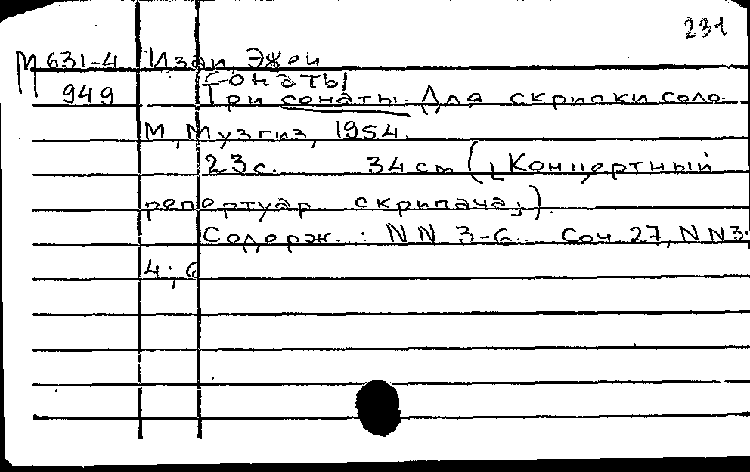 231
М 631-4 Изаи Эжен
Сонаты
949 Три сонаты. Для скрипки соло
М, Музгиз, 1954.
23 с. 34 cm („Концертный
репертуар скрипача„).
Содерж.: NN 3-6. Соч. 27, NN 3;
4; 6